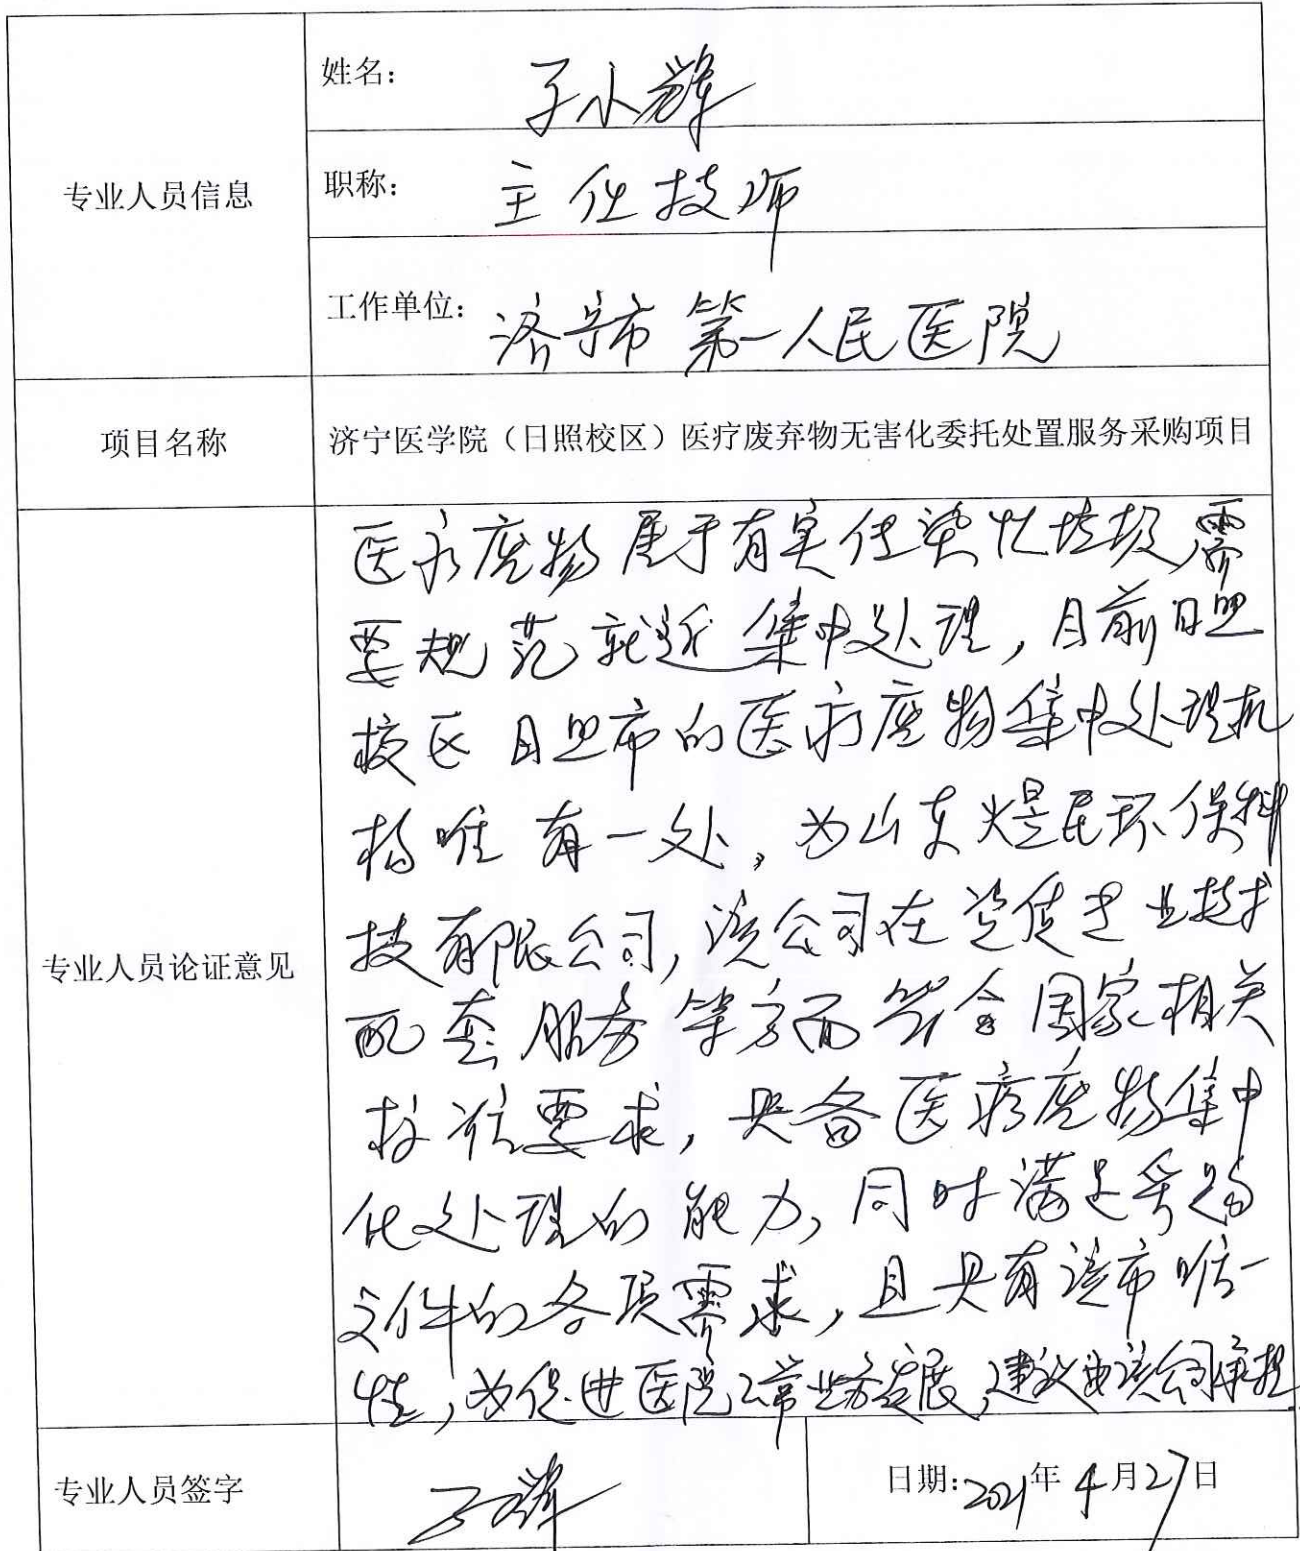 专业人员信息
姓名：
小辉
职称：主任技师
工作单位：济宁市第一人民医院
项目名称
济宁医学院（日照校区）医疗废弃物无害化委托处置服务采购项目
专业人员论证意见
医疗废物属于有害传染性垃圾，需
要规范就近集中处理，目前日照
校区日照市的医疗废物集中处理机
构唯有一处，为山东煜民环保科
技有限公司，该公司在资质专业技术
配套服务等方面符合国家相关
标准要求，具备医疗废物集中
化处理的能力，同时满足采购
文件的各项需求，且具有该市唯一
性，为促进医院正常业务发展，建议由该公司承担.
专业人员签字
日期：2021年4月27日